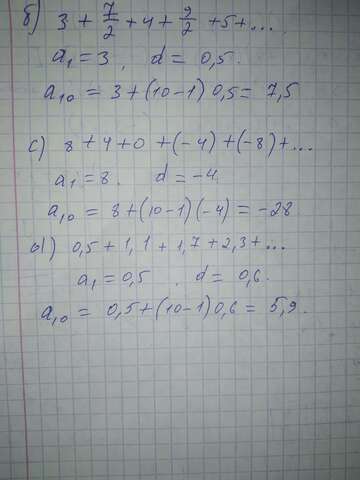 б) 3 + 7/2 + 4 + 9/2 + 5 + ...
a₁ = 3, d = 0,5.
a₁₀ = 3 + (10-1) 0,5 = 7,5
c) 8 + 4 + 0 + (-4) + (-8) + ...
a₁ = 8. d = -4
a₁₀ = 8 + (10-1)(-4) = -28
d) 0,5 + 1,1 + 1,7 + 2,3 + ...
a₁ = 0,5. d = 0,6.
a₁₀ = 0,5 + (10-1) 0,6 = 5,9.